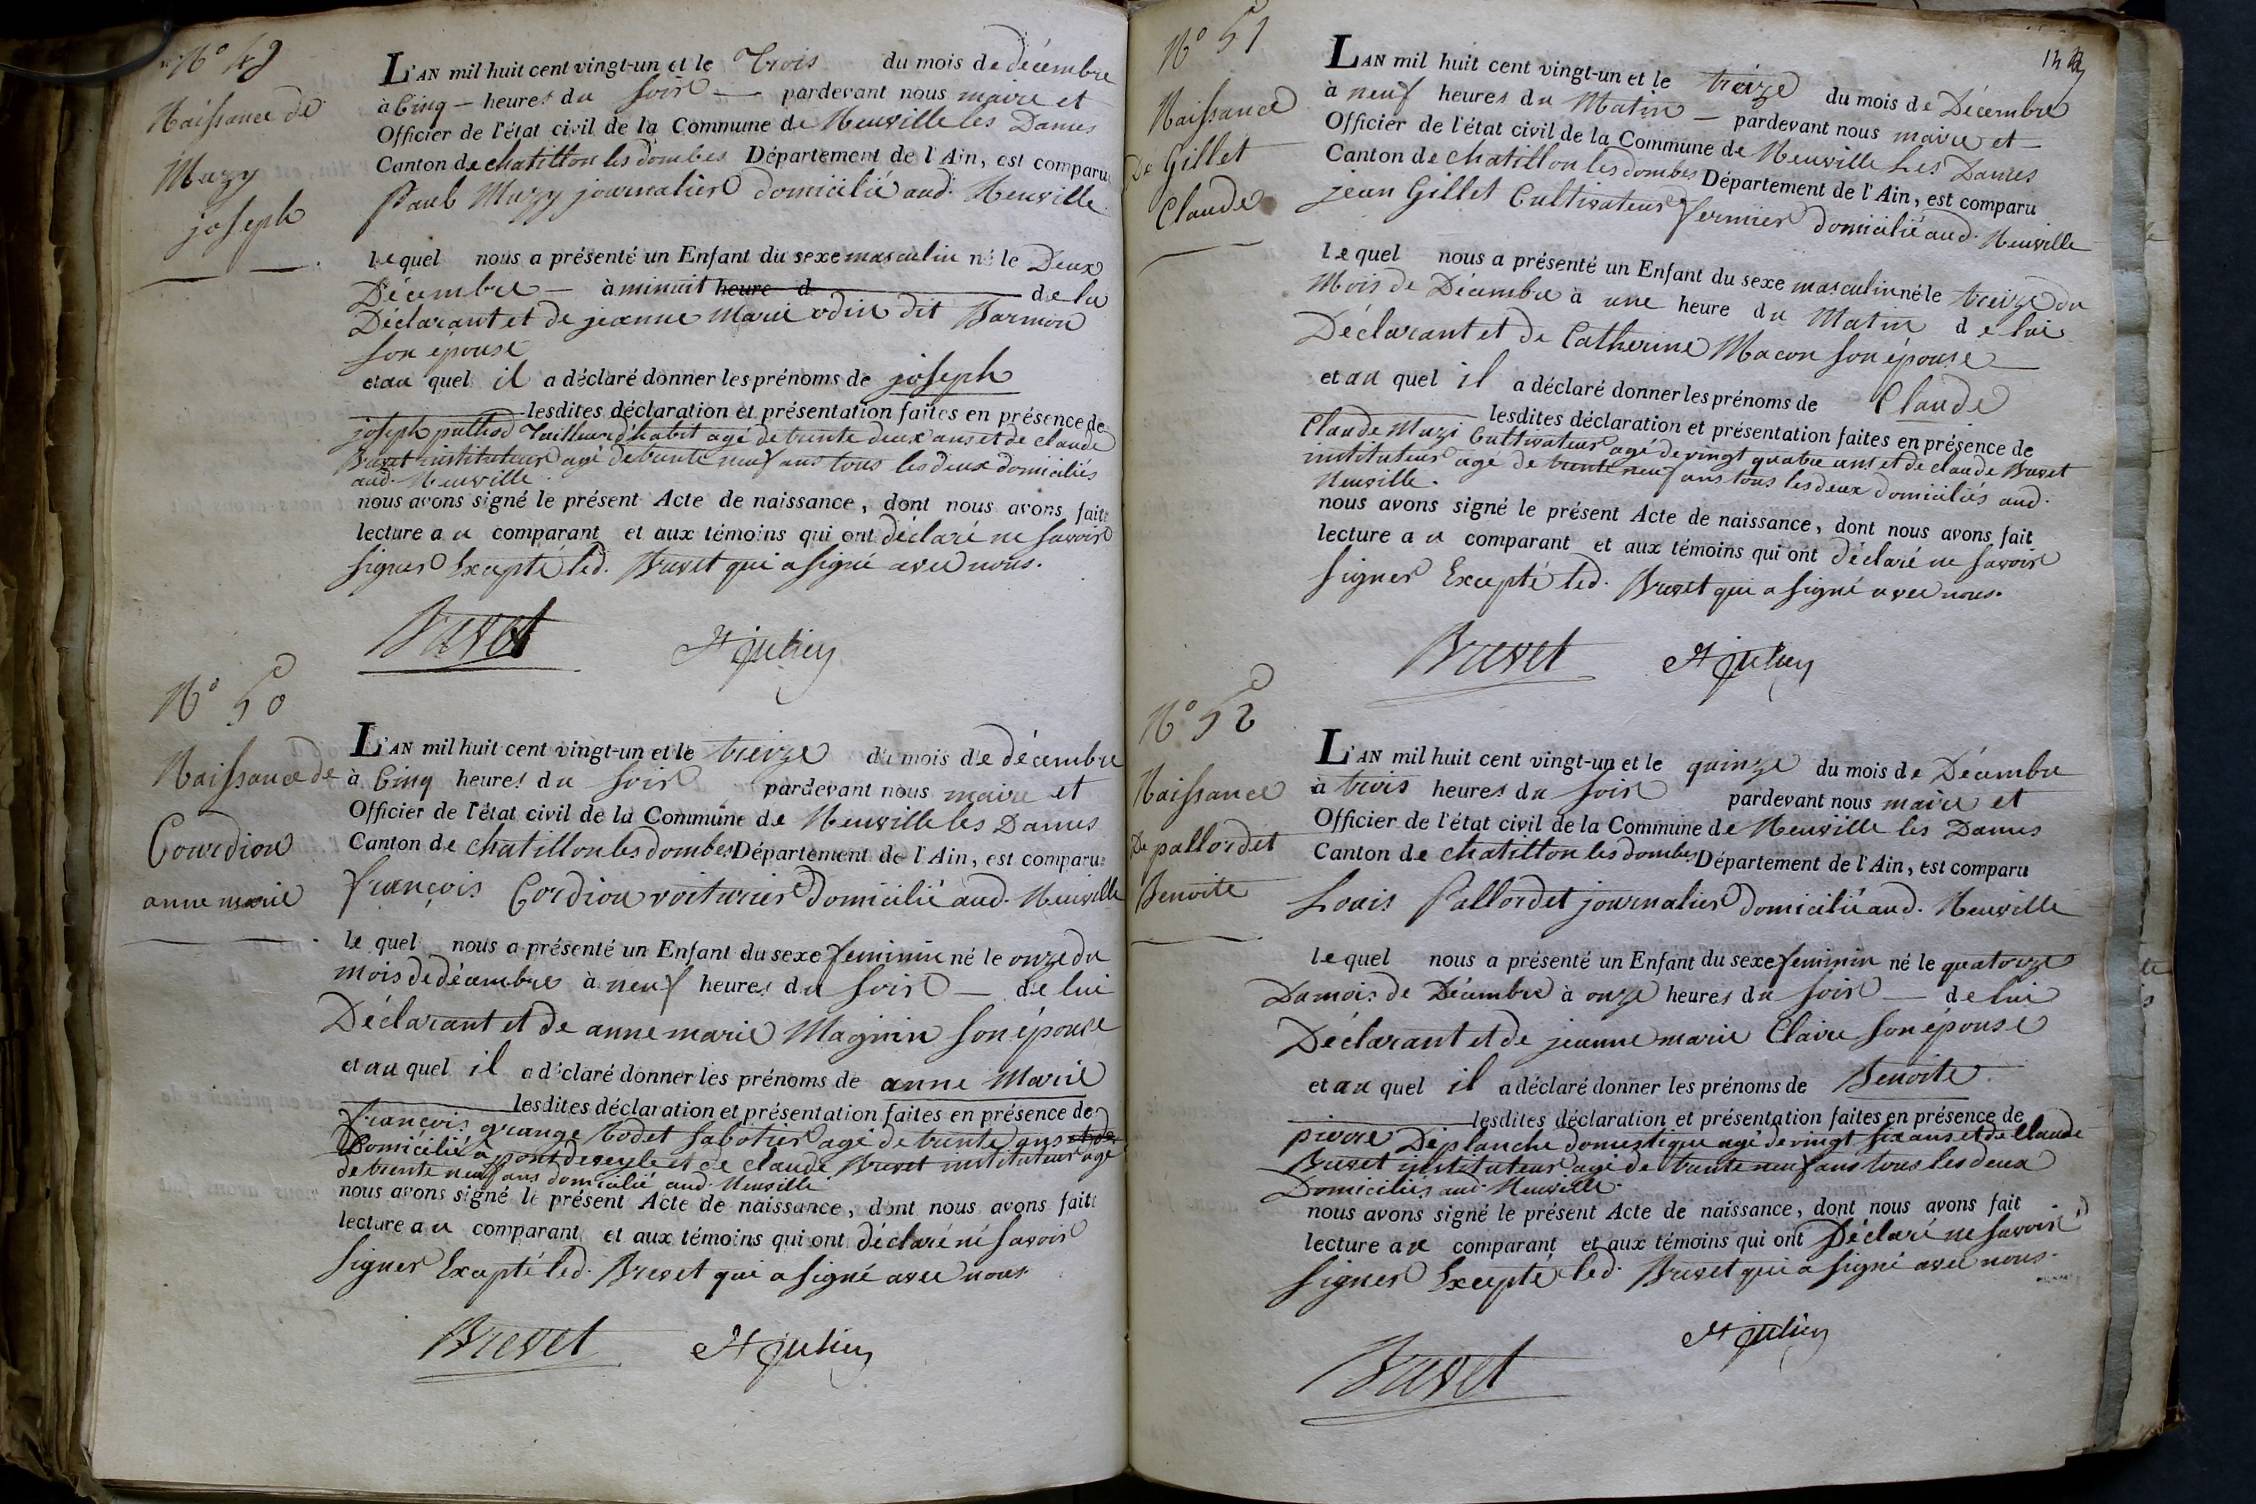 N° 49
Naissance de
Muzy
joseph
L'AN mil huit cent vingt-un et le Trois du mois de décembre
à Cinq — heures du soir — pardevant nous maire et
Officier de l'état civil de la Commune de Neuville les Dames
Canton de chatillon les dombes Département de l'Ain, est comparu
Paul Muzy journalier domicilié aud. Neuville
lequel nous a présenté un Enfant du sexe masculin né le Deux
Décembre — à minuit heure d de lui
Déclarant et de jeanne Marie odin dit Barmon
son épouse
et au quel il a déclaré donner les prénoms de joseph
lesdites déclaration et présentation faites en présence de
joseph pathod Tailleur d'habit agé de trente deux ans et de claude
Brevet instituteur agé de trente neuf ans tous les deux domiciliés
aud. Neuville.
nous avons signé le présent Acte de naissance, dont nous avons fait
lecture au comparant et aux témoins qui ont déclaré ne savoir
signer Excepté led. Brevet qui a signé avec nous.
Brevet St julien
N° 50
Naissance de
Courdion
anne marie
L'AN mil huit cent vingt-un et le treize du mois de décembre
à Cinq heures du soir pardevant nous maire et
Officier de l'état civil de la Commune de Neuville les Dames
Canton de chatillon les dombes Département de l'Ain, est comparu
françois Cordion voiturier domicilié aud. Neuville
le quel nous a présenté un Enfant du sexe feminin né le onze du
mois de décembre à neuf heures du soir — de lui
Déclarant et de anne marie Magnin son épouse
et au quel il a déclaré donner les prénoms de anne Marie
lesdites déclaration et présentation faites en présence de
françois grange Bodet sabotier agé de trente ans et de
Domicilié a pont de veyle et de claude Brevet instituteur agé
de trente neuf ans domicilié aud. Neuville
nous avons signé le présent Acte de naissance, dont nous avons fait
lecture au comparant et aux témoins qui ont déclaré ne savoir
signer Excepté led. Brevet qui a signé avec nous
Brevet St julien
N° 51
Naissance
De Gillet
Claude
L'AN mil huit cent vingt-un et le treize du mois de Décembre
à neuf heures du Matin — pardevant nous maire et
Officier de l'état civil de la Commune de Neuville Les Dames
Canton de chatillon les dombes Département de l'Ain, est comparu
jean Gillet Cultivateur fermier domicilié aud. Neuville
lequel nous a présenté un Enfant du sexe masculin né le treize du
Mois de Décembre à une heure du Matin de lui
Déclarant et de Catherine Macon son épouse
et au quel il a déclaré donner les prénoms de Claude
lesdites déclaration et présentation faites en présence de
Claude Muzi Cultivateur agé de vingt quatre ans et de claude Brevet
instituteur agé de trente neuf ans tous les deux domiciliés aud.
Neuville.
nous avons signé le présent Acte de naissance, dont nous avons fait
lecture au comparant et aux témoins qui ont déclaré ne savoir
signer Excepté led. Brevet qui a signé avec nous.
Brevet St julien
N° 52
Naissance
De pallordet
Benoite
L'AN mil huit cent vingt-un et le quinze du mois de Décembre
à trois heures du soir pardevant nous maire et
Officier de l'état civil de la Commune de Neuville les Dames
Canton de chatillon les dombes Département de l'Ain, est comparu
Louis Pallordet journalier domicilié aud. Neuville
lequel nous a présenté un Enfant du sexe feminin né le quatorze
Du mois de Décembre à onze heures du soir — de lui
Déclarant et de jeanne marie Claire son épouse
et au quel il a déclaré donner les prénoms de Benoite
lesdites déclaration et présentation faites en présence de
pierre Déplanche domestique agé de vingt six ans et de Claude
Brevet instituteur agé de trente neuf ans tous les deux
Domiciliés aud. Neuville.
nous avons signé le présent Acte de naissance, dont nous avons fait
lecture au comparant et aux témoins qui ont Déclaré ne savoir
signer Excepté led. Brevet qui a signé avec nous.
St julien
Brevet